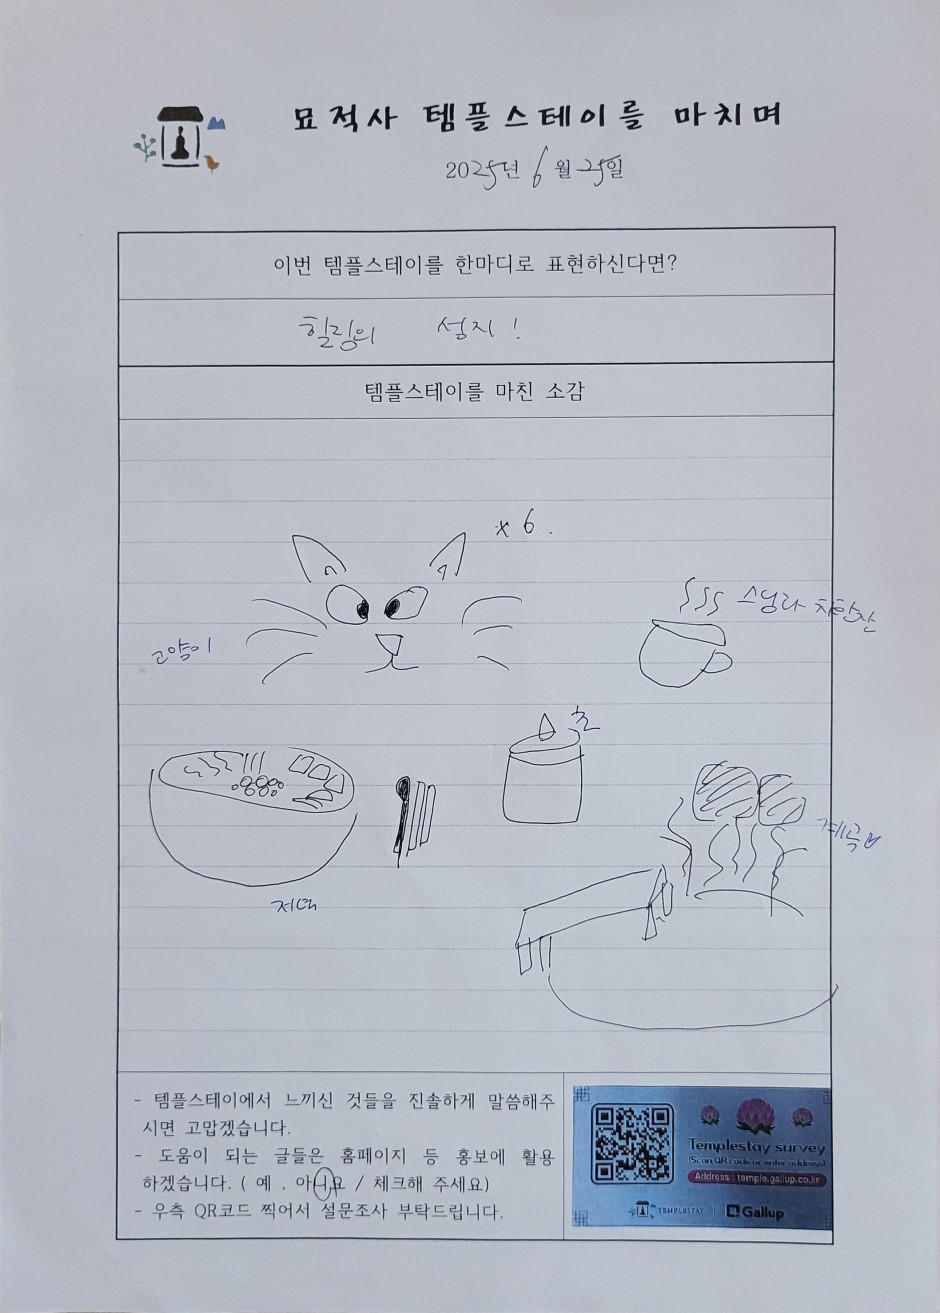 묘적사 템플스테이를 마치며
2025년 6월 25일
이번 템플스테이를 한마디로 표현하신다면?
힐링의 성지!
템플스테이를 마친 소감
x 6.
스님과 차한잔
고양이
초
계곡
저녁
- 템플스테이에서 느끼신 것들을 진솔하게 말씀해주
시면 고맙겠습니다.
- 도움이 되는 글들은 홈페이지 등 홍보에 활용
하겠습니다. ( 예 , 아니요 / 체크해 주세요)
- 우측 QR코드 찍어서 설문조사 부탁드립니다.
Templestay survey
(Scan QR code or enter address)
Address : temple.gallup.co.kr
TEMPLESTAY
Gallup